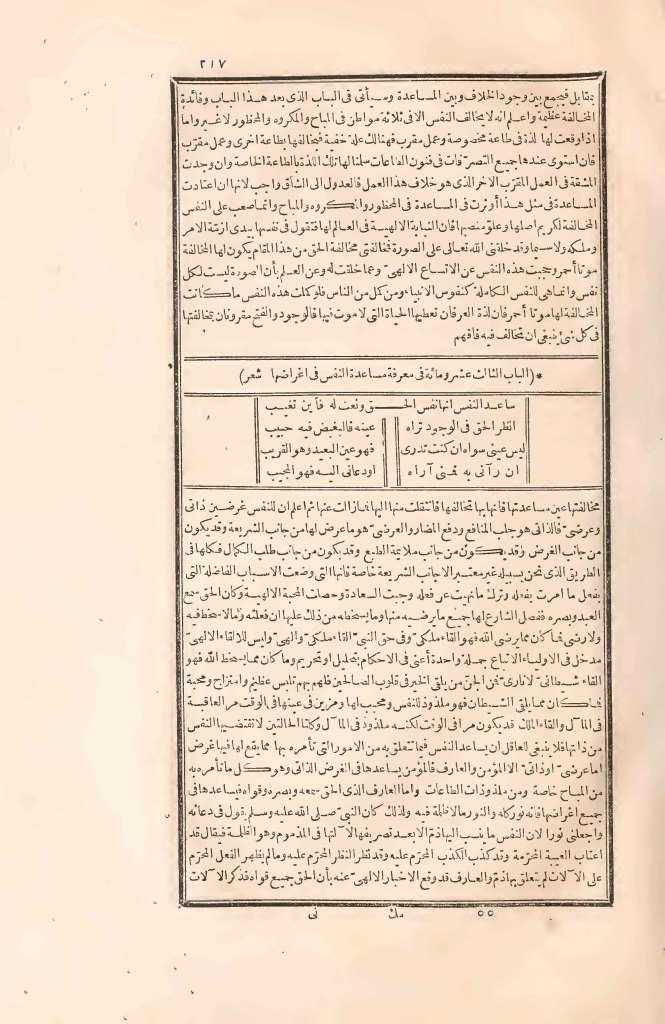 ٢١٧
يتقابل فيجمع بين وجود الخلاف وبين المساعدة وسيأتى فى الباب الذى بعد هذا الباب وفائدة
المخالفة عظيمة واعلم انه لا يخالف النفس الا فى ثلاثة مواطن فى المباح والمكروه والمحظور لا غير واما
اذا وقعت لها لذة فى طاعة مخصوصة وعمل مقرب فهنالك علة خفية فيخالفها بطاعة اخرى وعمل مقرب
فان استوى عندها جميع التصرفات فى فنون الطاعات سلمنا لها تلك اللذة بالطاعة الخاصة وان وجدت
المشقة فى العمل المقرب الاخر الذى هو خلاف هذا العمل فالعدول الى الشاق واجب لانها ان اعتادت
المساعدة فى مثل هذا أوثرت فى المساعدة فى المحظور والمكروه والمباح وانما صعب على النفس
المخالفة لكريم اصلها وعلو منصبها فان النيابة الالهية فى العالم لها فتقول فى نفسها بيدى ازمة الامر
وملكه ولا سيما وقد خلقنى الله تعالى على الصورة فخالفتى مخالفة الحق من هذا المقام يكون لها المخالفة
موتا أحمر وحجبت هذه النفس عن الاتساع الالهى وعما خلقت له وعن العلم بأن الصورة ليست لكل
نفس وانما هى للنفس الكاملة كنفوس الانبياء ومن كمل من الناس فلو كملت هذه النفس ما كانت
المخالفة لها موتا أحمر فان لذة العرفان تعطيها الحياة التى لا موت فيها فالوجود والفتح مقرونان بمخالفتها
فى كل شئ ينبغى ان تخالف فيه فافهم
* (الباب الثالث عشر ومائة فى معرفة مساعدة النفس فى اغراضها شعر)
ساعد النفس انها نفس الحق ونعت له فأين تغيب
انظر الحق فى الوجود تراه عينه فالبغيض فيه حبيب
ليس عينى سواه ان كنت تدرى فهو عين البعيد وهو القريب
ان رآنى به فمنى أراه اودعانى اليه فهو المجيب
مخالفتها عين مساعدتها فانها بها تخالفها فانتقلت منها اليها فما زالت عنها ثم اعلم ان للنفس غرضين ذاتى
وعرضى فالذاتى هو جلب المنافع ودفع المضار والعرضى هو ما عرض لها من جانب الشريعة وقد يكون
من جانب الغرض وقد يكون من جانب ملايمة الطبع وقد يكون من جانب طلب الكمال فكلها فى
الطريق الذى نحن بسبيله غير معتبر الا جانب الشريعة خاصة فانها التى وضعت الاسباب الفاضلة التى
بفعل ما امرت بفعله وترك ما نهيت عن فعله وجبت السعادة وحصلت المحبة الالهية وكان الحق سمع
العبد وبصره ففصل الشارع لها جميع ما يرضيه منها وما يسخطه من ذلك عليها ان فعلته وما لا سخط فيه
ولا رضى فما كان مما يرضى الله فهو القاء ملكى وفى حق النبى القاء ملكى والهى وليس للالقاء الالهى
مدخل فى الاولياء الاتباع جملة واحدة أعنى فى الاحكام بتحليل او تحريم وما كان مما يسخط الله فهو
القاء شيطانى لا نارى فمن الجن من يلقى الخير فى قلوب الصالحين فلهم بهم تلبس عظيم وامتزاج ومحبة
فما كان مما يلقى الشيطان فهو ملذوذ للنفس ومحبب لها ومزين فى عينها فى الوقت مر العاقبة
فى المآل والقاء الملك قد يكون مرا فى الوقت لكنه ملذوذ فى المآل وكلتا الحالتين لا تقتضيها النفس
من ذاتها فلا ينبغى للعاقل ان يساعد النفس فيما تتعلق به من الامور التى تأمره بها مما يقع لها فيها غرض
اما عرضى اوذاتى الا المؤمن والعارف فالمؤمن يساعدها فى الغرض الذاتى وهو كل ما تأمره به
من المباح خاصة ومن ملذوذات الطاعات واما العارف الذى الحق سمعه وبصره وقواه فيساعدها فى
جميع اغراضها فانه نور كله والنور ما لا ظلمة فيه ولذلك كان النبى صلى الله عليه وسلم يقول فى دعائه
واجعلنى نورا لان النفس ما ينسب اليها ذم الا بعد تصريفها الآلتها فى المذموم وهو الظلمة فيقال قد
أغتاب الغيبة المحرمة وقد كذب الكذب المحرم عليه وقد نظر النظر المحرم عليه وما لم يظهر الفعل المحرم
على الآلات لم يتعلق بها ذم والعارف قد وقع الاخبار الالهى عنه بأن الحق جميع قواه فذكر الآلات
٥٥ مك نى